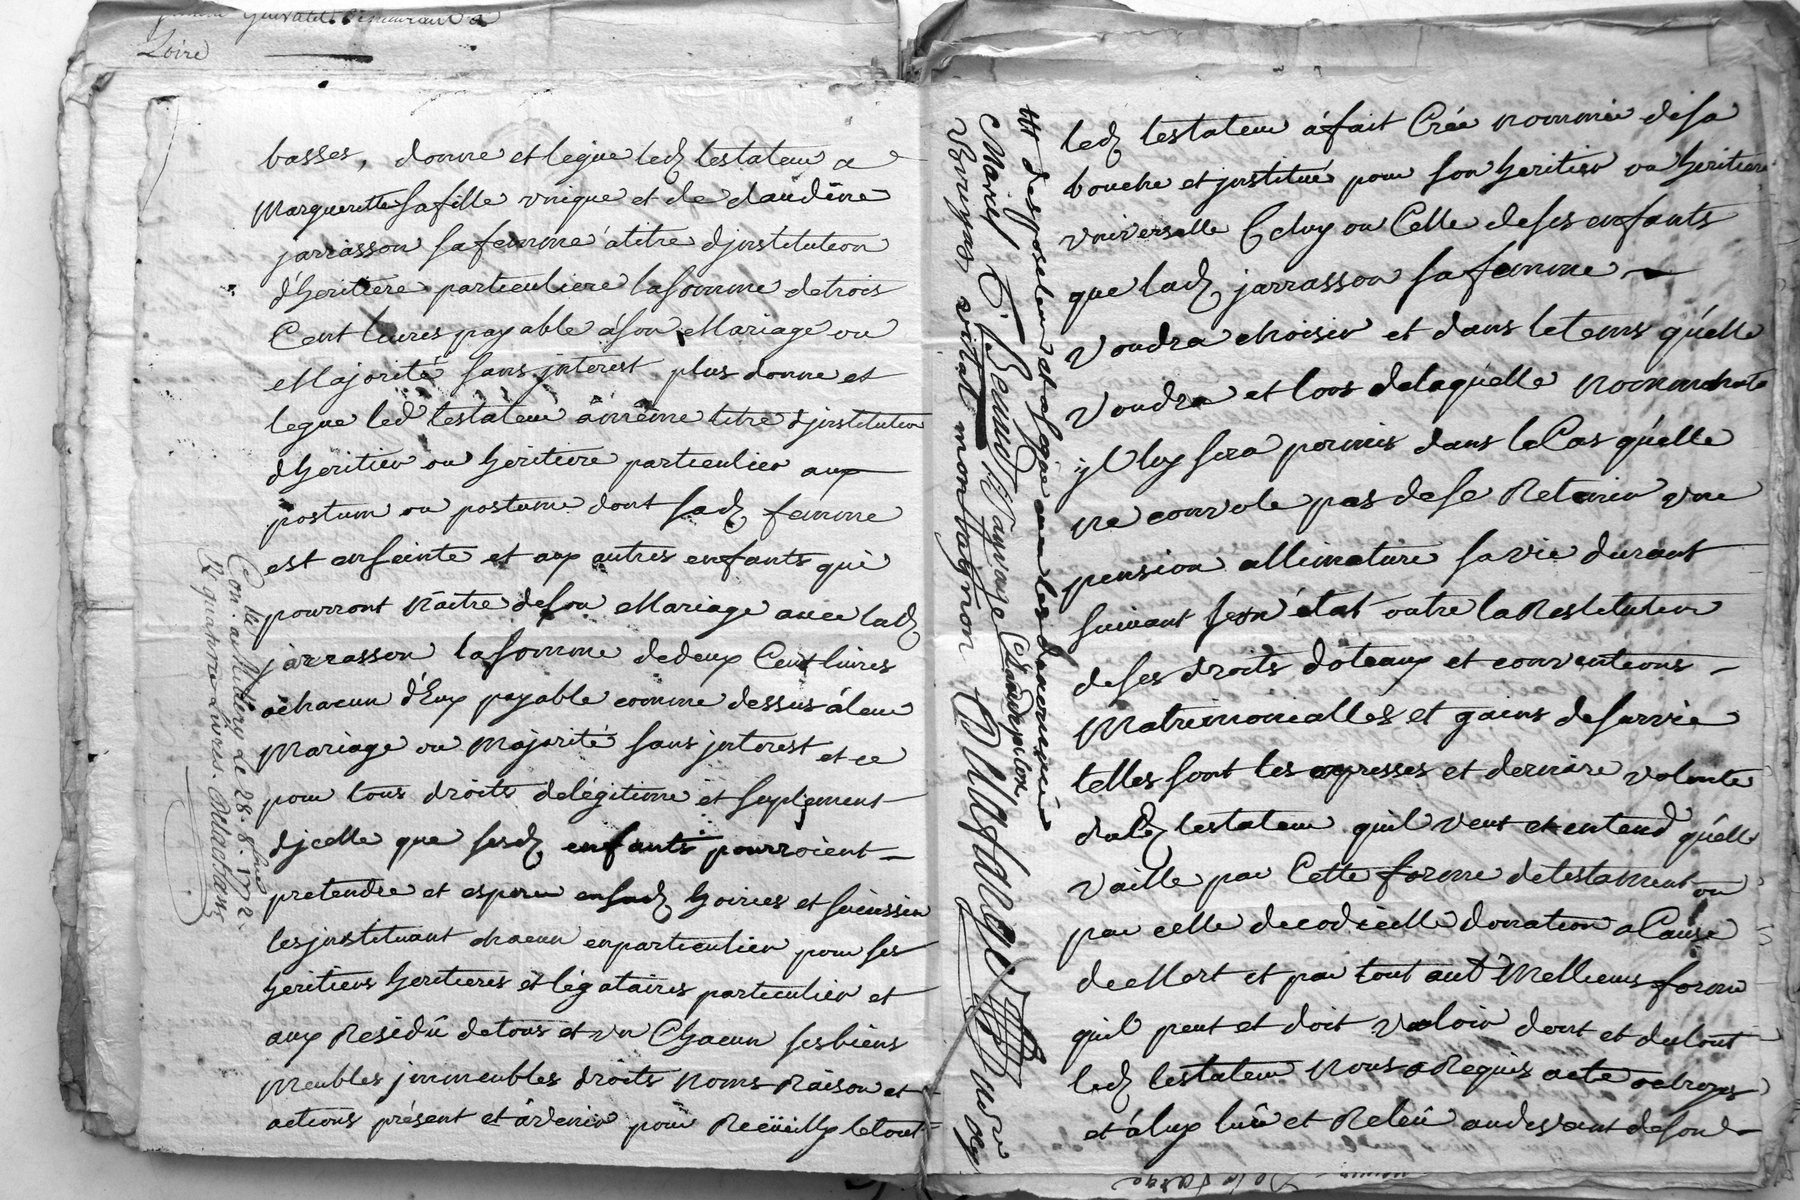 Loire
basses, donne et legue led testateur a
Margueritte sa fille unique et de claudine
jarrasson sa femme a titre d'jnstitution
d'heritiere particuliere la somme de trois
Cent livres payable a son Mariage ou
Majorité sans jnterest plus donne et
legue led testateur a même titre d'jnstitution
d'heritier ou heritiere particulier aux
postum ou postume dont sad femme
est enseinte et aux autres enfants qui
pourront naitre de son Mariage avec lad
jarrasson la somme de deux Cent livres
a chacun d'Eux payable comme dessus a leur
Mariage ou Majorité sans jnterest et ce
pour tous droits de légitime et suplement
d'jcelle que sesd enfants pourroient
pretendre et esperer en sad hoiries et succession
les jnstituant chacun en particulier pour ses
heritiers heritieres et légataires particulier et
aux Residû de tous et un Chacun ses biens
Meubles jmmeubles droits Noms Raison et
actions présent et âvenir pour Recüeillir le tout
Con.lé a le 28. 8.bre 1772.
R. quatre livres. Delachans
led testateur a fait Créé nommé de sa
bouche et jnstitué pour son heritier ou heritiere
universelle Celuy ou Celle de ses enfants
que lad jarrasson sa femme
voudra choisir et dans le tems qu'elle
voudra et lors de laquelle nommination
jl luy sera permis dans le Cas qu'elle
ne convole pas de se Retenir une
pension allimature sa vie durant
suivant son état outre la Restitution
de ses droits doteaux et conventions
Matrimonialles et gains de survie
telles sont les expresses et derniere volonté
dud testateur qu'il veut et entend qu'elle
vaille par Cette forme de testament ou
par celle de codicille donation a Cause
de Mort et par tout aut Mellieurs forme
qu'il peut et doit valoir dont et du tout
led testateur Nous a Requis acte octroyé
et a luy lu et Relû au devant de son